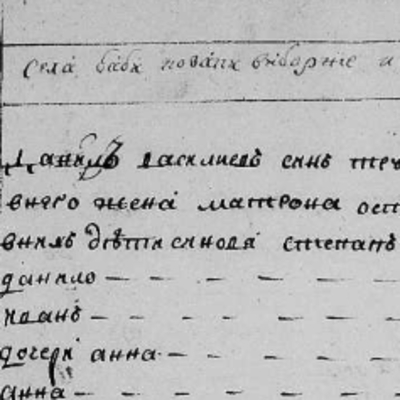 села баби новаих виборние и
Данилъ василиевъ синъ тре
внего жена матрона ост
внихъ дѣти синовя степанъ
данило
иванъ
дочери анна
анна